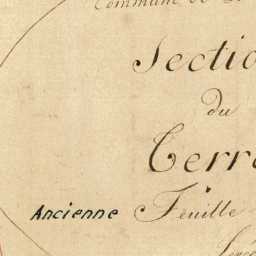 Commune de
Section
du
Terr
Ancienne Feuille